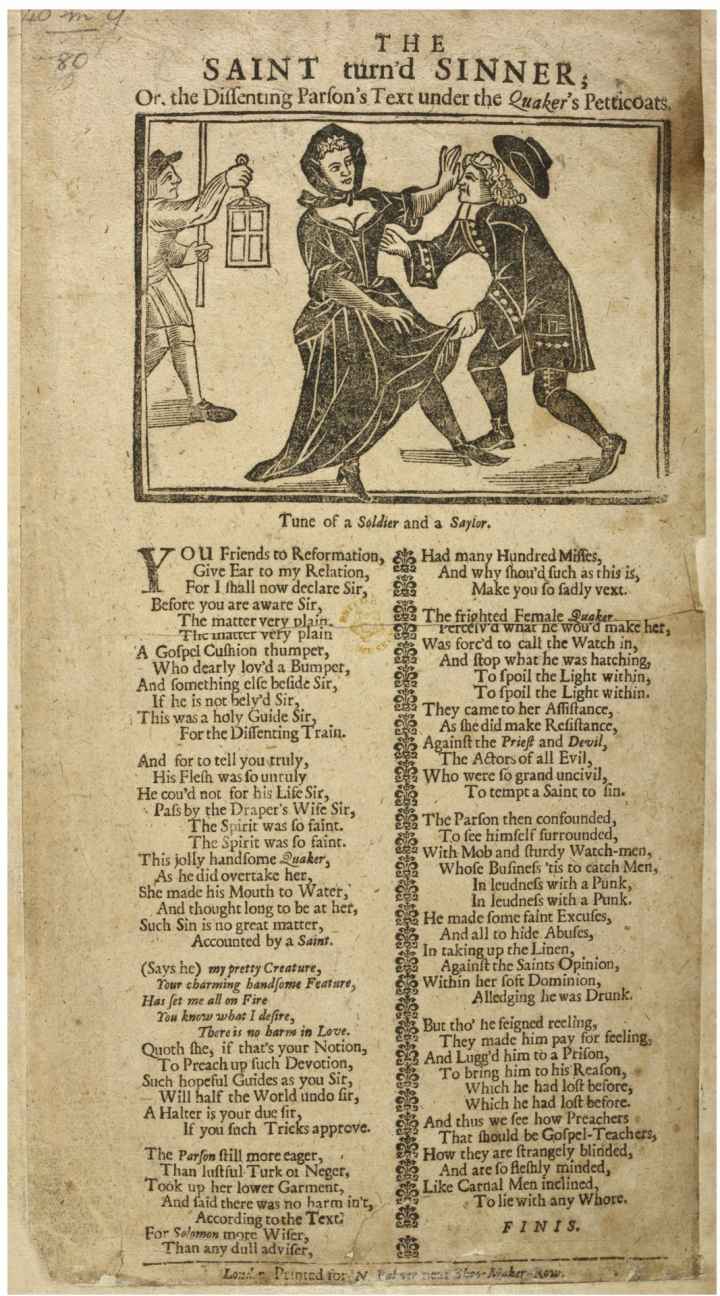 40 m 9
80
THE
SAINT turn'd SINNER;
Or, the Diſſenting Parſon's Text under the Quaker's Petticoats.
Tune of a Soldier and a Saylor.
YOU Friends to Reformation,
Give Ear to my Relation,
For I ſhall now declare Sir,
Before you are aware Sir,
The matter very plain.
The matter very plain
A Goſpel Cuſhion thumper,
Who dearly lov'd a Bumper,
And ſomething elſe beſide Sir,
If he is not bely'd Sir,
This was a holy Guide Sir,
For the Diſſenting Train.
And for to tell you truly,
His Fleſh was ſo unruly
He cou'd not for his Life Sir,
Paſs by the Draper's Wife Sir,
The Spirit was ſo faint.
The Spirit was ſo faint.
This jolly handſome Quaker,
As he did overtake her,
She made his Mouth to Water,
And thought long to be at her,
Such Sin is no great matter,
Accounted by a Saint.
(Says he) my pretty Creature,
Your charming handſome Feature,
Has ſet me all on Fire
You know what I deſire,
There is no harm in Love.
Quoth ſhe, if that's your Notion,
To Preach up ſuch Devotion,
Such hopeful Guides as you Sir,
Will half the World undo ſir,
A Halter is your due ſir,
If you ſuch Tricks approve.
The Parſon ſtill more eager,
Than luſtful Turk or Neger,
Took up her lower Garment,
And ſaid there was no harm in't,
According to the Text.
For Solomon more Wiſer,
Than any dull adviſer,
Had many Hundred Miſſes,
And why ſhou'd ſuch as this is,
Make you ſo ſadly vext.
The frighted Female Quaker
Perceiv'd what he wou'd make her,
Was forc'd to call the Watch in,
And ſtop what he was hatching,
To ſpoil the Light within,
To ſpoil the Light within.
They came to her Aſſiſtance,
As ſhe did make Reſiſtance,
Againſt the Prieſt and Devil,
The Actors of all Evil,
Who were ſo grand uncivil,
To tempt a Saint to ſin.
The Parſon then confounded,
To ſee himſelf ſurrounded,
With Mob and ſturdy Watch-men,
Whoſe Buſineſs 'tis to catch Men,
In leudneſs with a Punk,
In leudneſs with a Punk.
He made ſome faint Excuſes,
And all to hide Abuſes,
In taking up the Linen,
Againſt the Saints Opinion,
Within her ſoft Dominion,
Alledging he was Drunk.
But tho' he feigned reeling,
They made him pay for feeling,
And Lugg'd him to a Priſon,
To bring him to his Reaſon,
Which he had loſt before,
Which he had loſt before.
And thus we ſee how Preachers
That ſhould be Goſpel-Teachers,
How they are ſtrangely blinded,
And are ſo fleſhly minded,
Like Carnal Men inclined,
To lie with any Whore.
FINIS.
London, Printed for N Palmer near Shoe-Maker-Row.